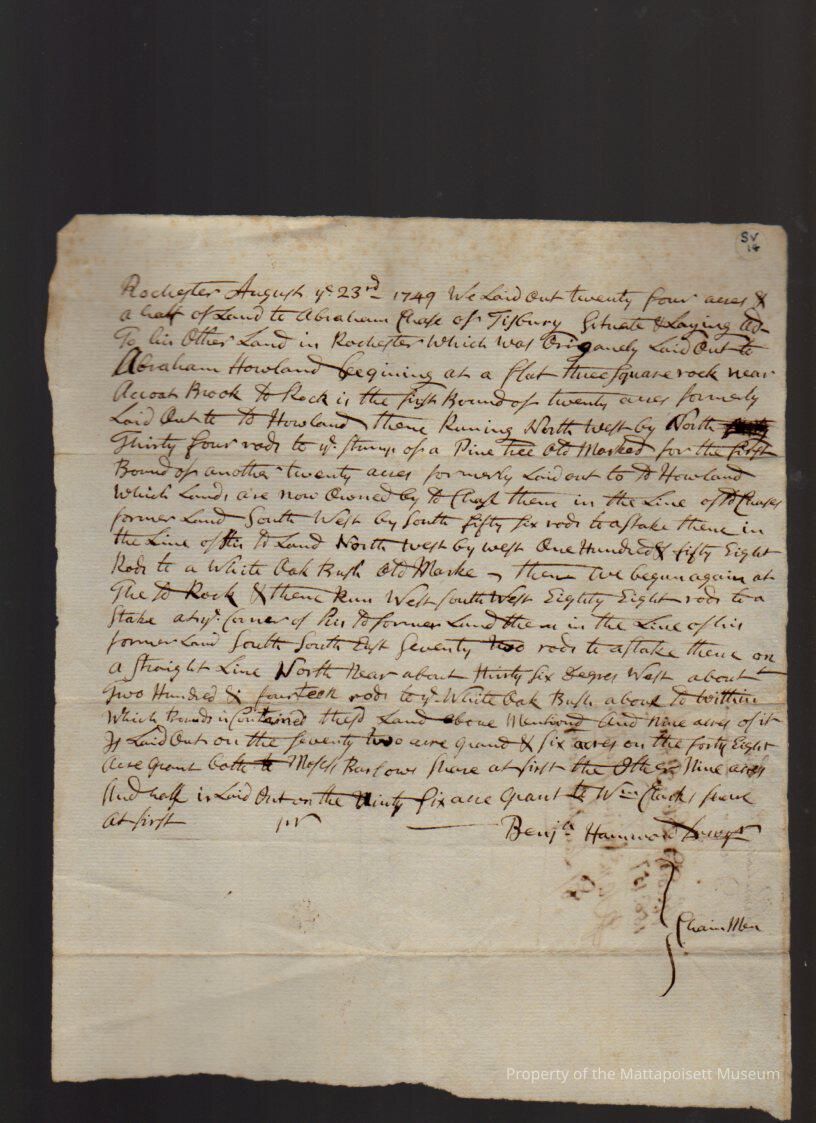 SV
14
Rochester August ye 23rd 1749 We Laid Out twenty four acres &
a half of Land to Abraham Chase of Tisbury Situate & Laying
To his Other Land in Rochester Which was Origanely Laid Out to
Abraham Howland begining at a flat three square rock near
Brook sd Rock is the first Bound of twenty acres formerly
Laid Out to sd Howland thence Runing North West by North
Thirty four rods to ye stump of a Pine tree Old Marked for the first
Bound of another twenty acres formerly Laid out to sd Howland
Which Lands are now Owned by sd Chase thence in the Line of sd Chases
former Land South West by South fifty six rods to a stake thence in
the Line of his sd Land North West by west One Hundred & fifty Eight
Rods to a White Oak Bush Old Marke thence We began again at
The sd Rock & thence Run West South West Eighty Eight rods to a
Stake at ye Corner of his sd former Land thence in the Line of his
former Land South South East Seventy two rods to a stake thence on
a Straight Line North Near about thirty six Degres West about
Two Hundred & fourteen rods to ye White Oak Bush above sd within
Which Bounds is Contained the sd Land above Mentioned And Nine acres of it
Is Laid Out on the Seventy two acre grant & six acres on the forty Eight
Acre grant both to Moses Barlows share at first the Other Nine acres
And half is Laid Out on the Ninty six acre Grant to Wm Clarks share
At first pr Benja Hammond Survyr
Chain Men
Property of the Mattapoisett Museum